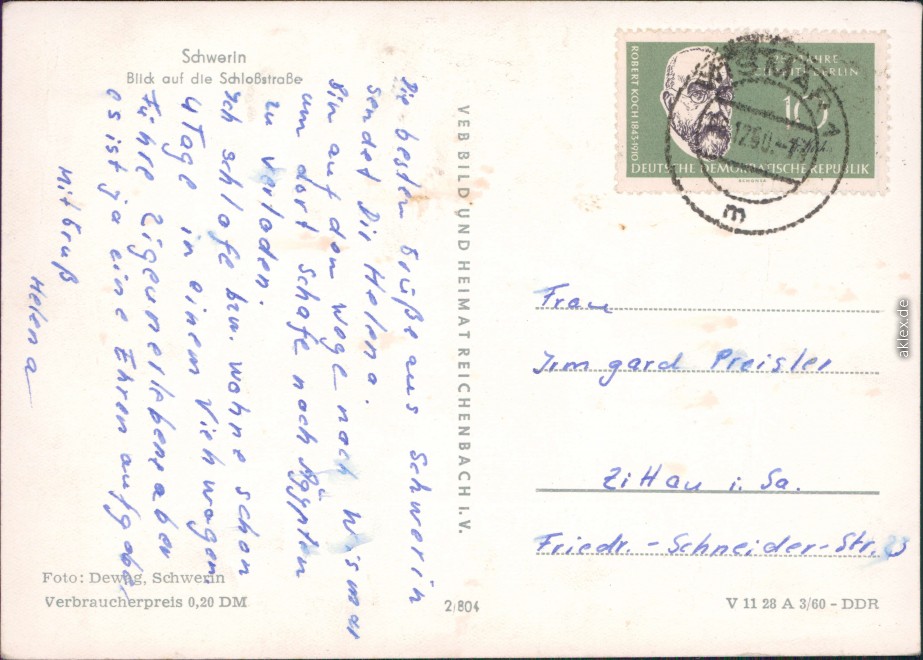 Schwerin
Blick auf die Schloßstraße
Die besten Grüße aus Schwerin
sendet Dir Helena.
Bin auf dem Wege nach Wismar
um dort Schafe nach Ägypten
zu verladen.
Ich schlafe bzw. wohne schon
4 Tage in einem Viehwagen.
Führe Zigeunerleben aber
es ist ja eine Ehrenaufgabe.
Mit Gruß
Helena
Foto: Dewag, Schwerin
Verbraucherpreis 0,20 DM
VEB BILD UND HEIMAT REICHENBACH I. V.
2/804
ROBERT KOCH 1843-1910
DEUTSCHE DEMOKRATISCHE REPUBLIK
m
Frau
Irmgard Preisler
Zittau i. Sa.
Friedr.-Schneider-Str. 23
V 11 28 A 3/60 - DDR
aklex.de